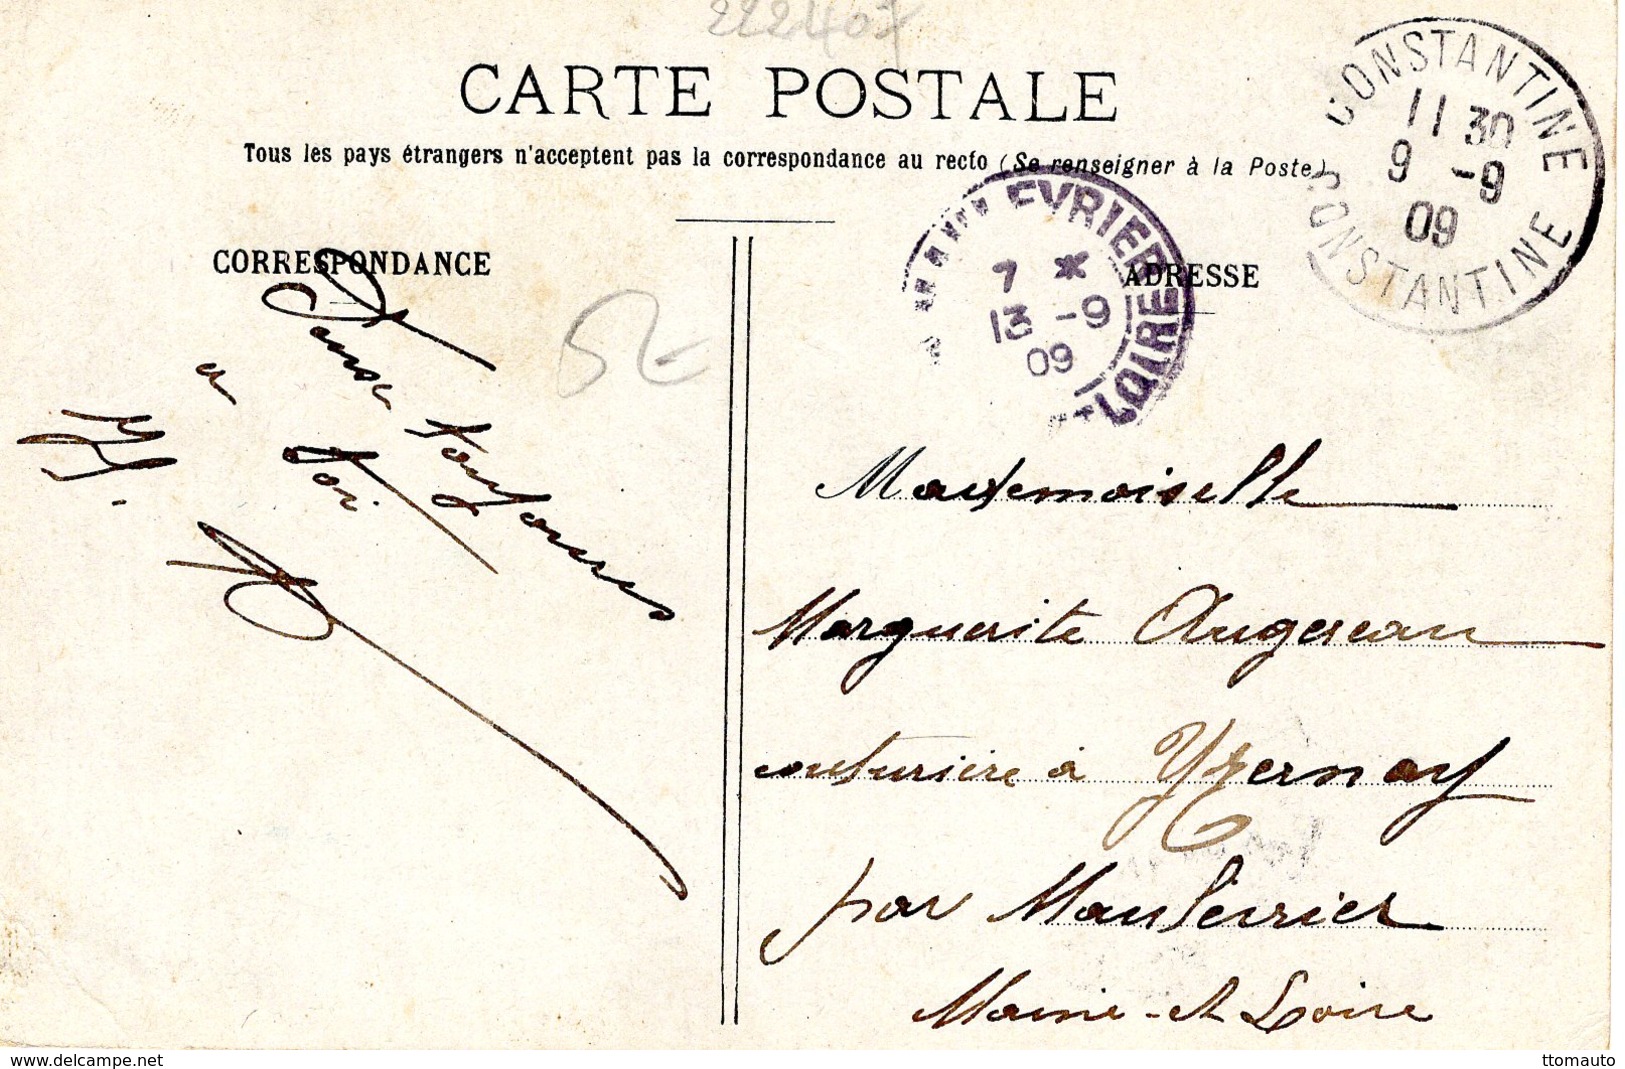 222407
CARTE POSTALE
Tous les pays étrangers n'acceptent pas la correspondance au recto (Se renseigner à la Poste)
CONSTANTINE
11 30
9 -9
09
CONSTANTINE
EVRIER
7 *
13 -9
09
LOIRE
CORRESPONDANCE
ADRESSE
Pense toujours
a toi
Mademoiselle
Marguerite Augereau
couturière à Yzernay
par Maulevrier
Maine-et Loire
delcampe.net
ttomauto